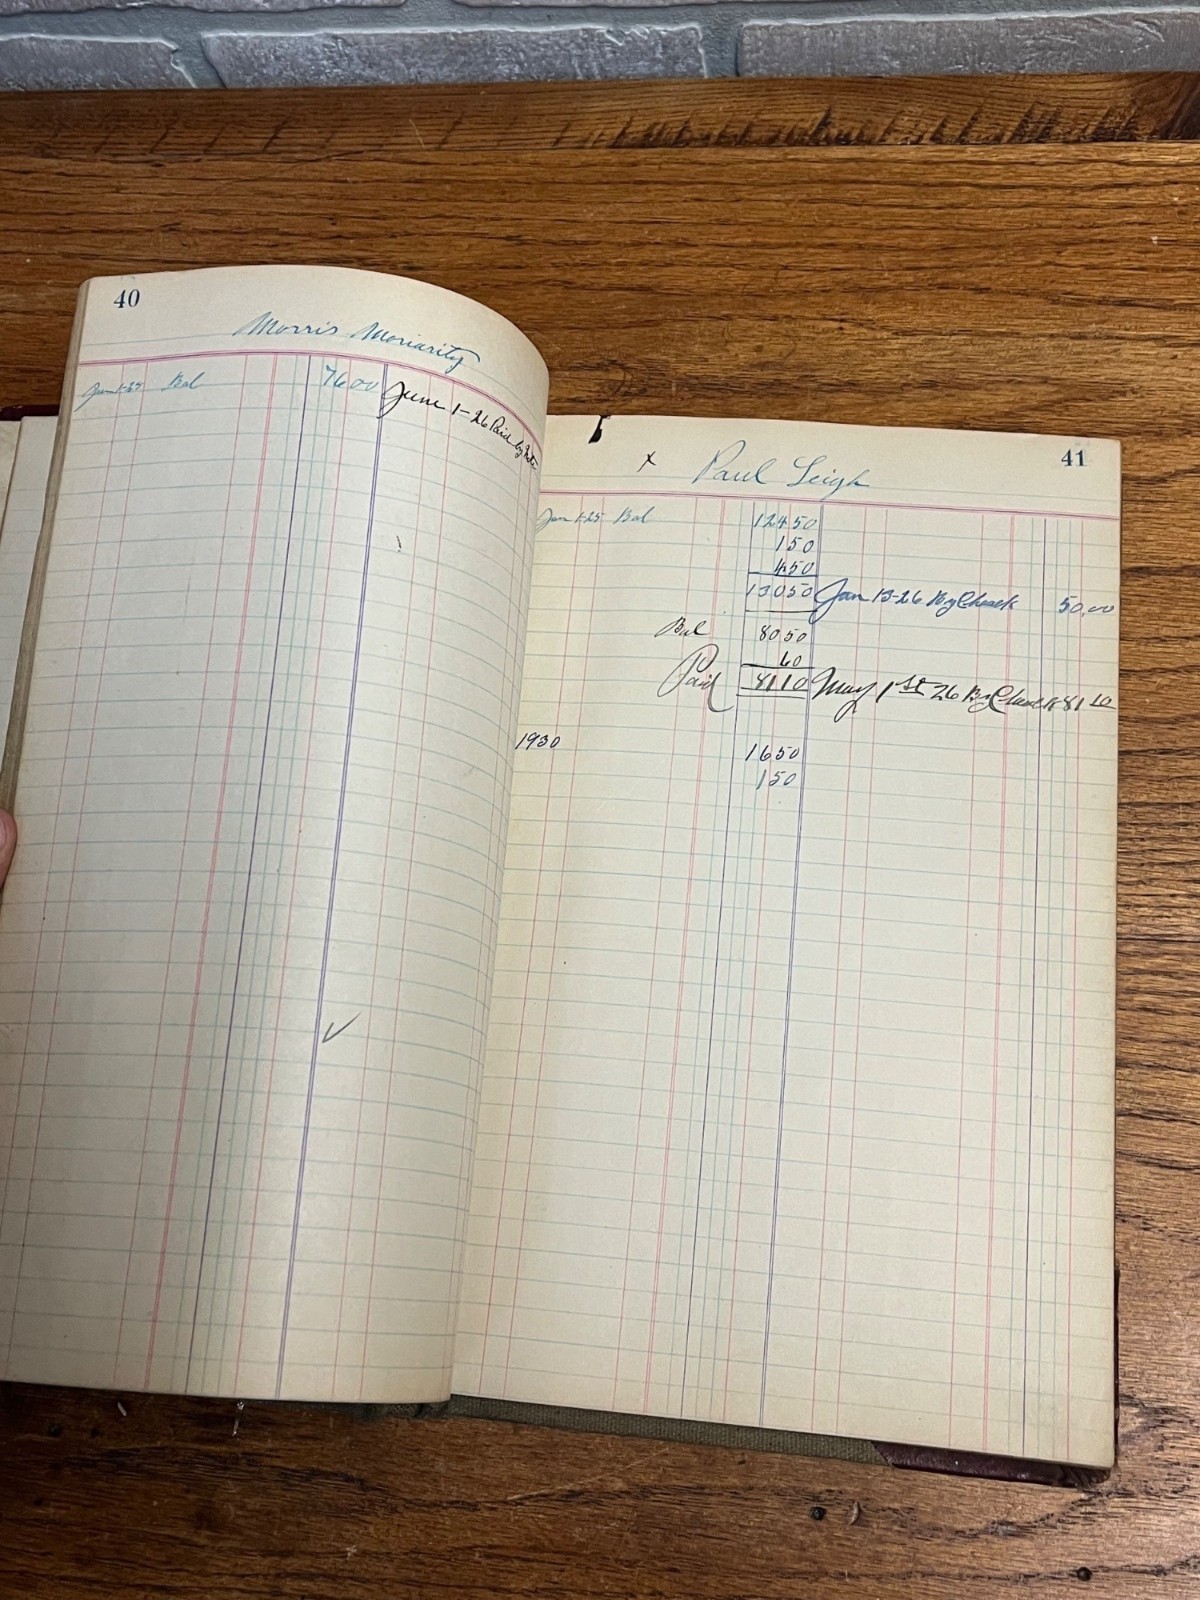 40
Morris Moriarity
Jan 1-25 Bal 76 00 June 1-26 Paid by Note
41
x Paul Leigh
Jan 1-25 Bal 124 50
1 50
4 50
130 50 Jan 13-26 By Check 50.00
Bal 80 50
60
Paid 81 10 May 1st 26 By Check 81 10
1930 16 50
1 50